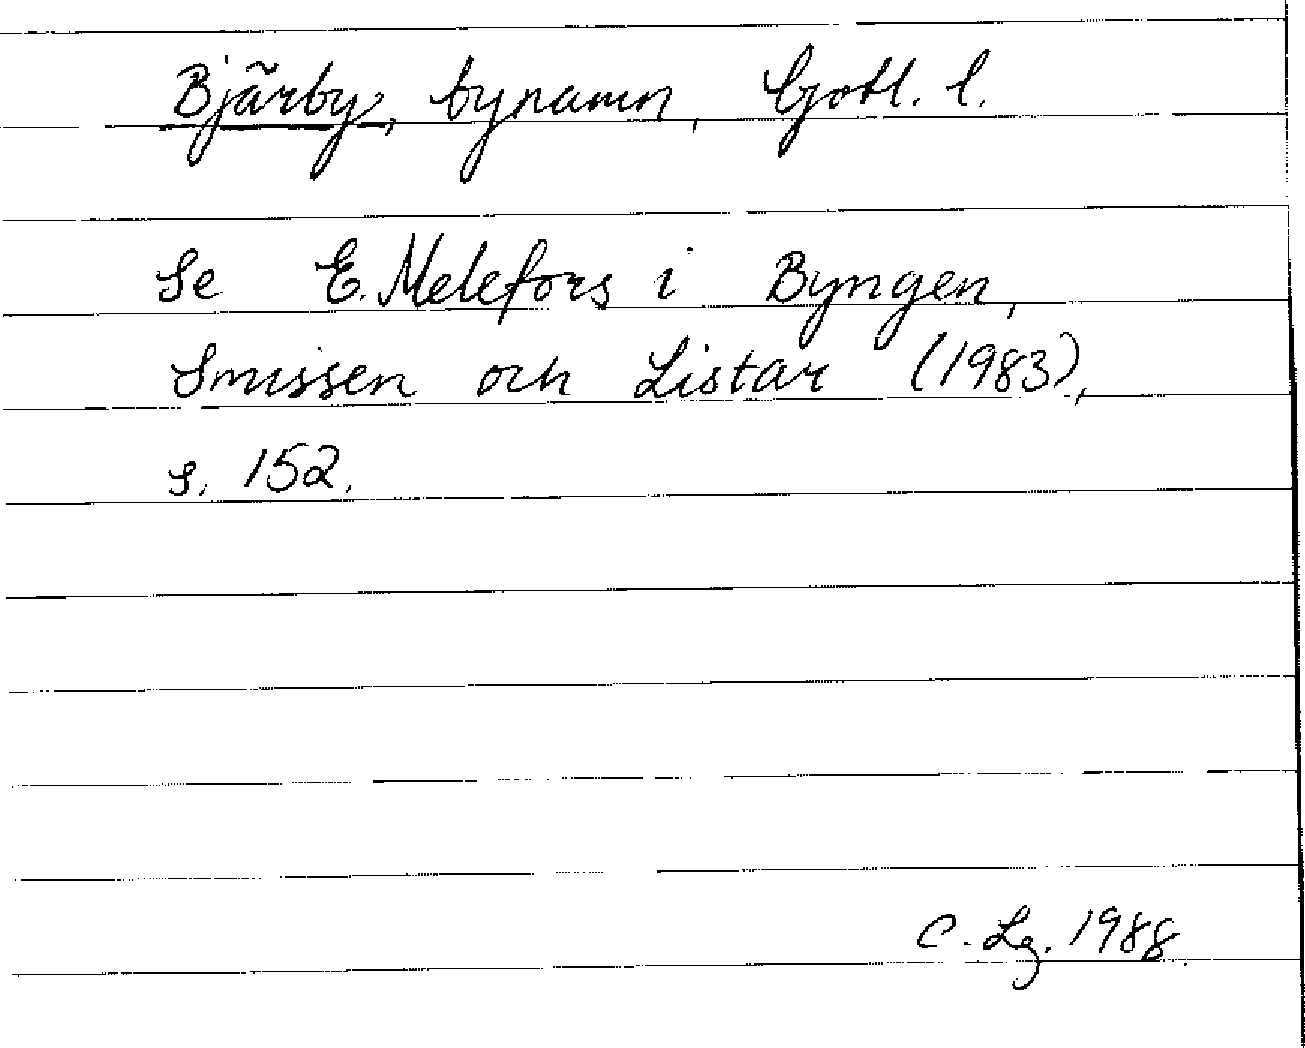 Bjärby, bynamn, Gotl. l.
Se E. Melefors i Byngen,
Smissen och Listar (1983),
s. 152.
C. Lg. 1988.